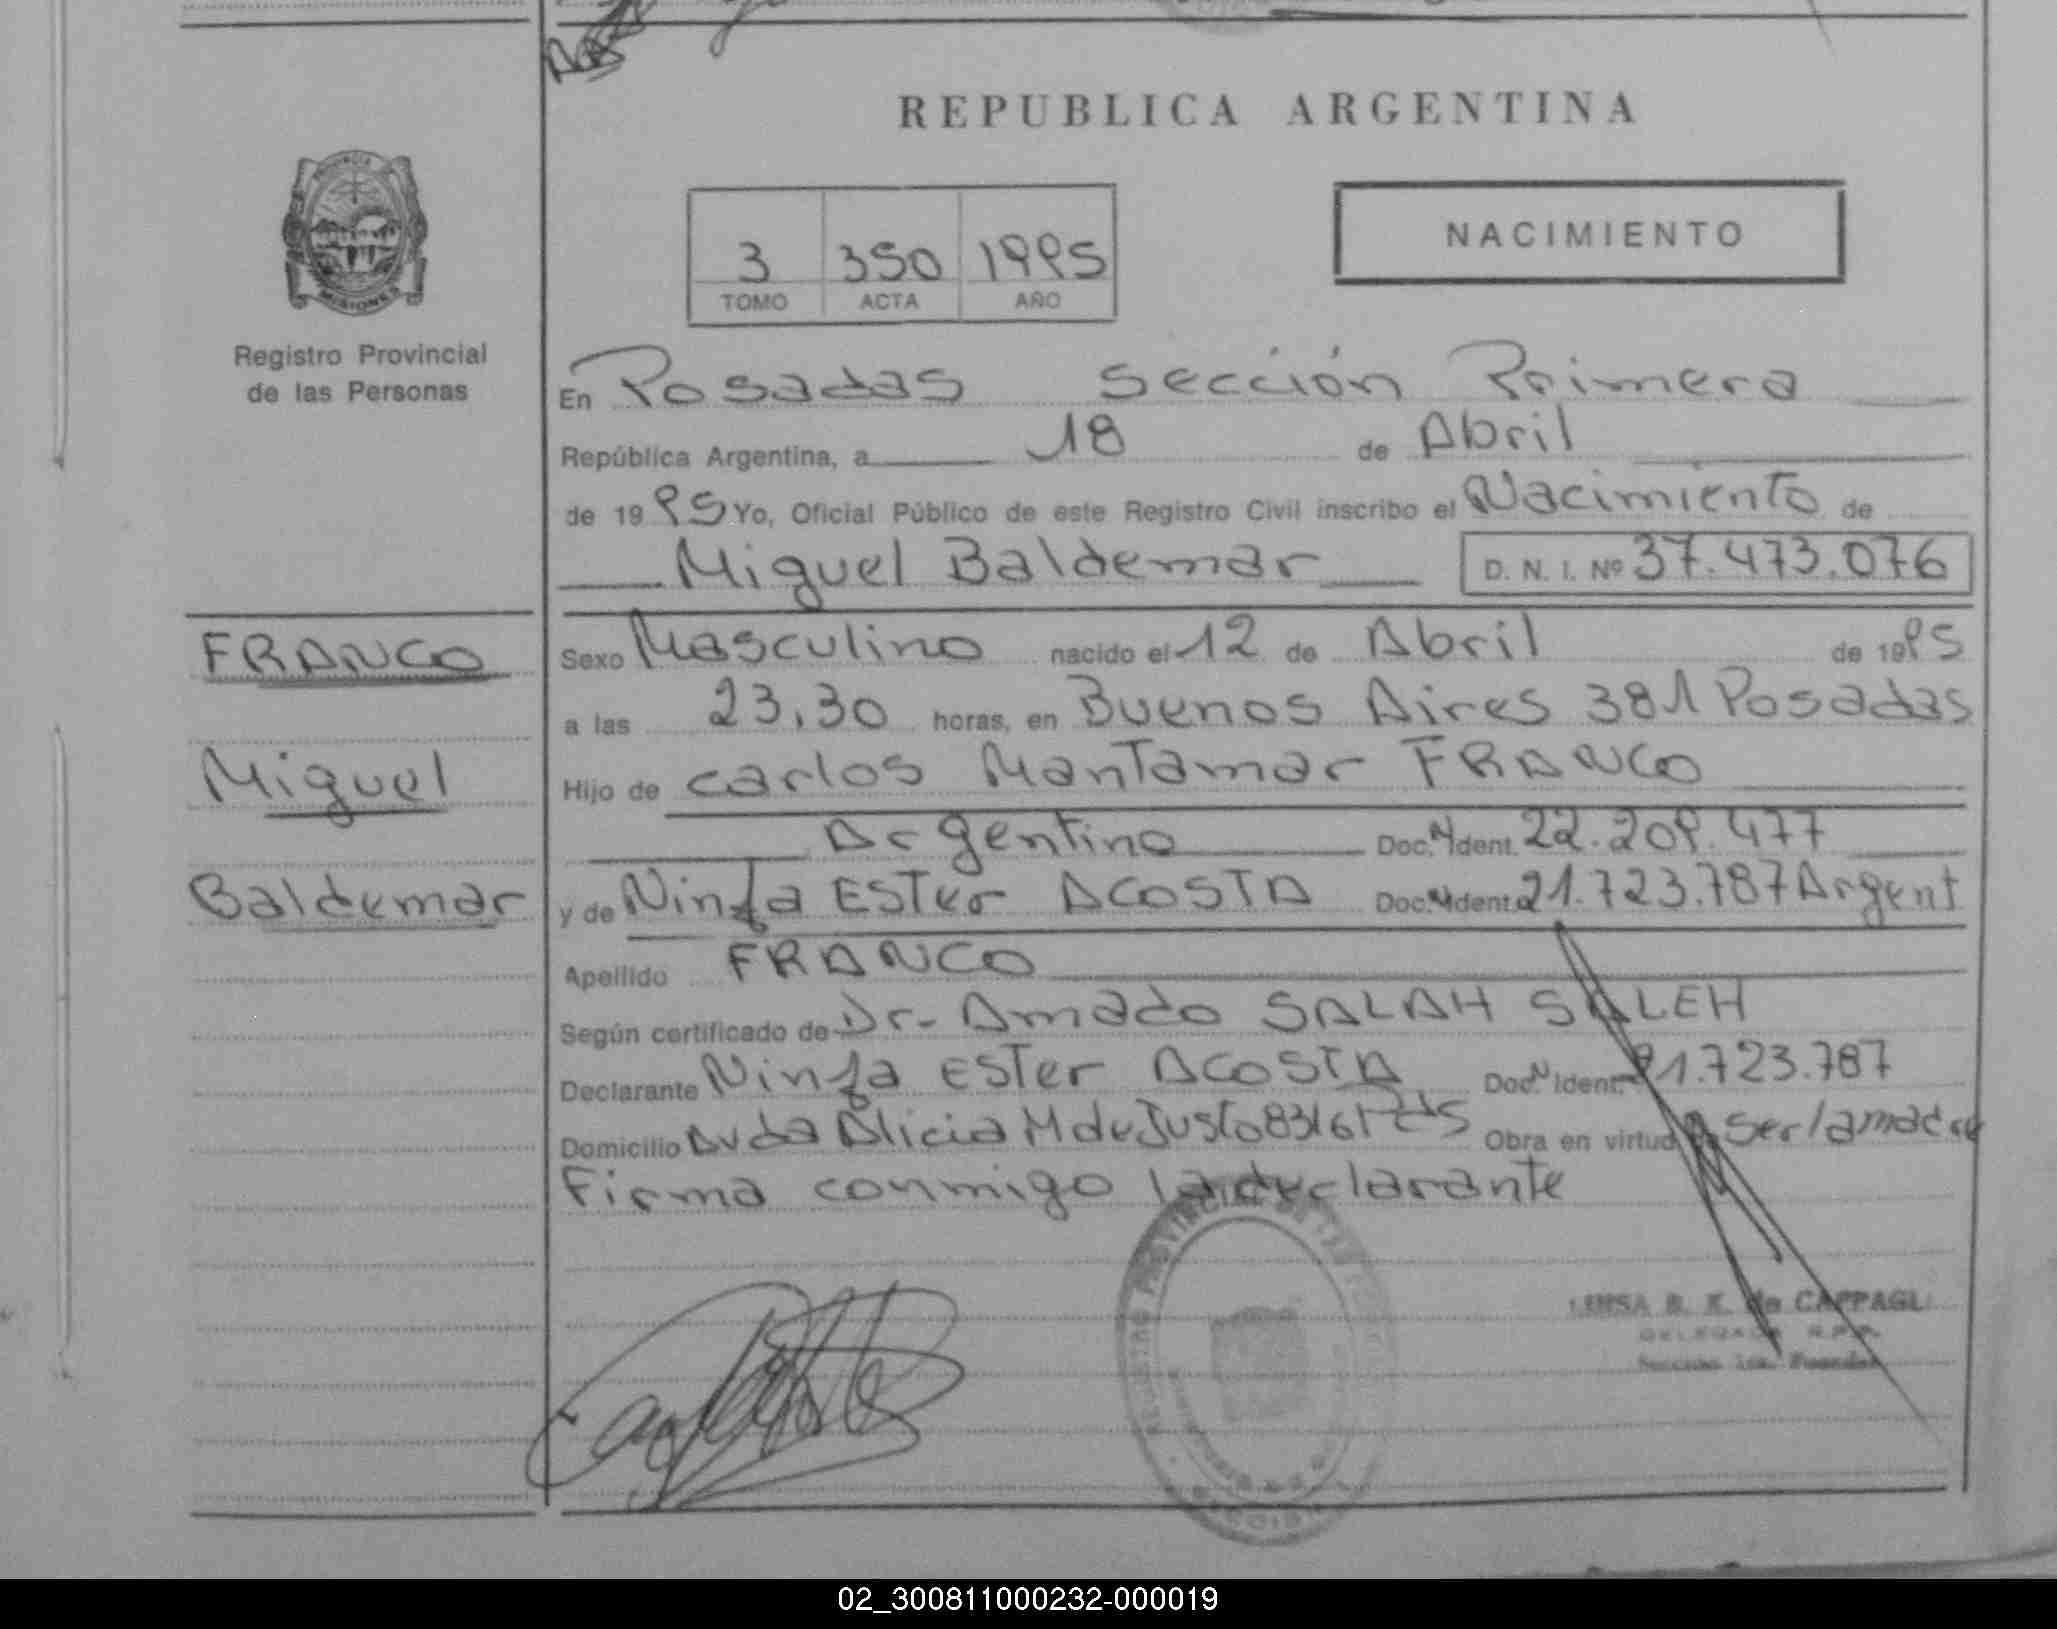 REPUBLICA ARGENTINA
MISIONES
Registro Provincial
de las Personas
3 350 1995
TOMO ACTA AÑO
NACIMIENTO
En Posadas Sección Primera
República Argentina, a 18 de Abril
de 1995 Yo, Oficial Público de este Registro Civil inscribo el Nacimiento de
Miguel Baldemar D. N. I. Nº 37.473.076
FRANCO
Miguel
Baldemar
Sexo Masculino nacido el 12 de Abril de 1995
a las 23,30 horas, en Buenos Aires 381 Posadas
Hijo de Carlos Mantamar FRANCO
Argentino Doc. N Ident. 22.209.477
y de Ninfa Ester ACOSTA Doc. N Ident. 21.723.787 Argent
Apellido FRANCO
Según certificado de Dr. Amado SALAH SALEH
Declarante Ninfa Ester ACOSTA Doc. N Ident. 21.723.787
Domicilio Avda Alicia M de Justo Obra en virtud ser la madre
Firma conmigo la declarante
de CAPPAGLI
02_300811000232-000019